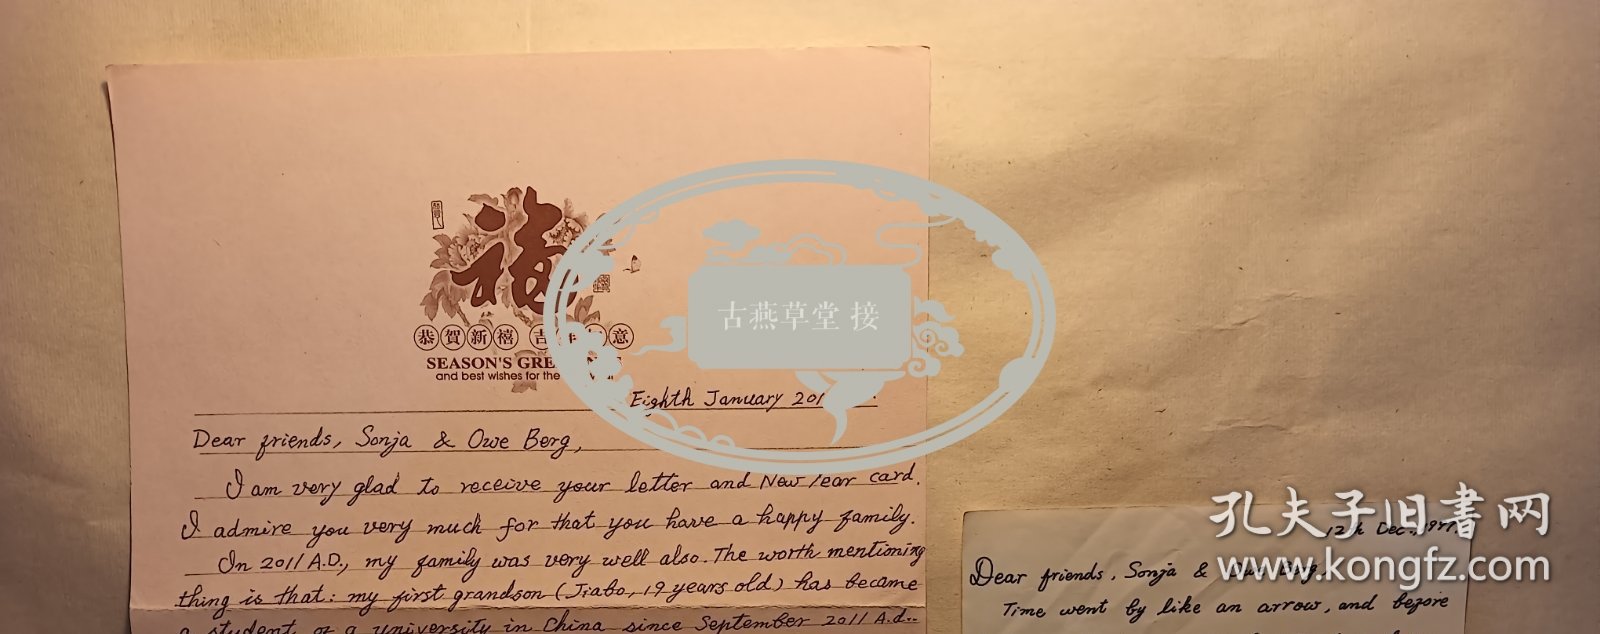 福
恭賀新禧 吉
意
SEASON'S GRE
and best wishes for the
Eighth January 201
Dear friends, Sonja & Owe Berg,
I am very glad to receive your letter and New Year card.
I admire you very much for that you have a happy family.
In 2011 A.D., my family was very well also. The worth mentioning
thing is that: my first grandson (Jiabo, 19 years old) has became
a student of a university in China since September 2011 A.D..
古燕草堂 接
孔夫子旧书网
www.kongfz.com
12th Dec.
Dear friends, Sonja &
Time went by like an arrow, and before